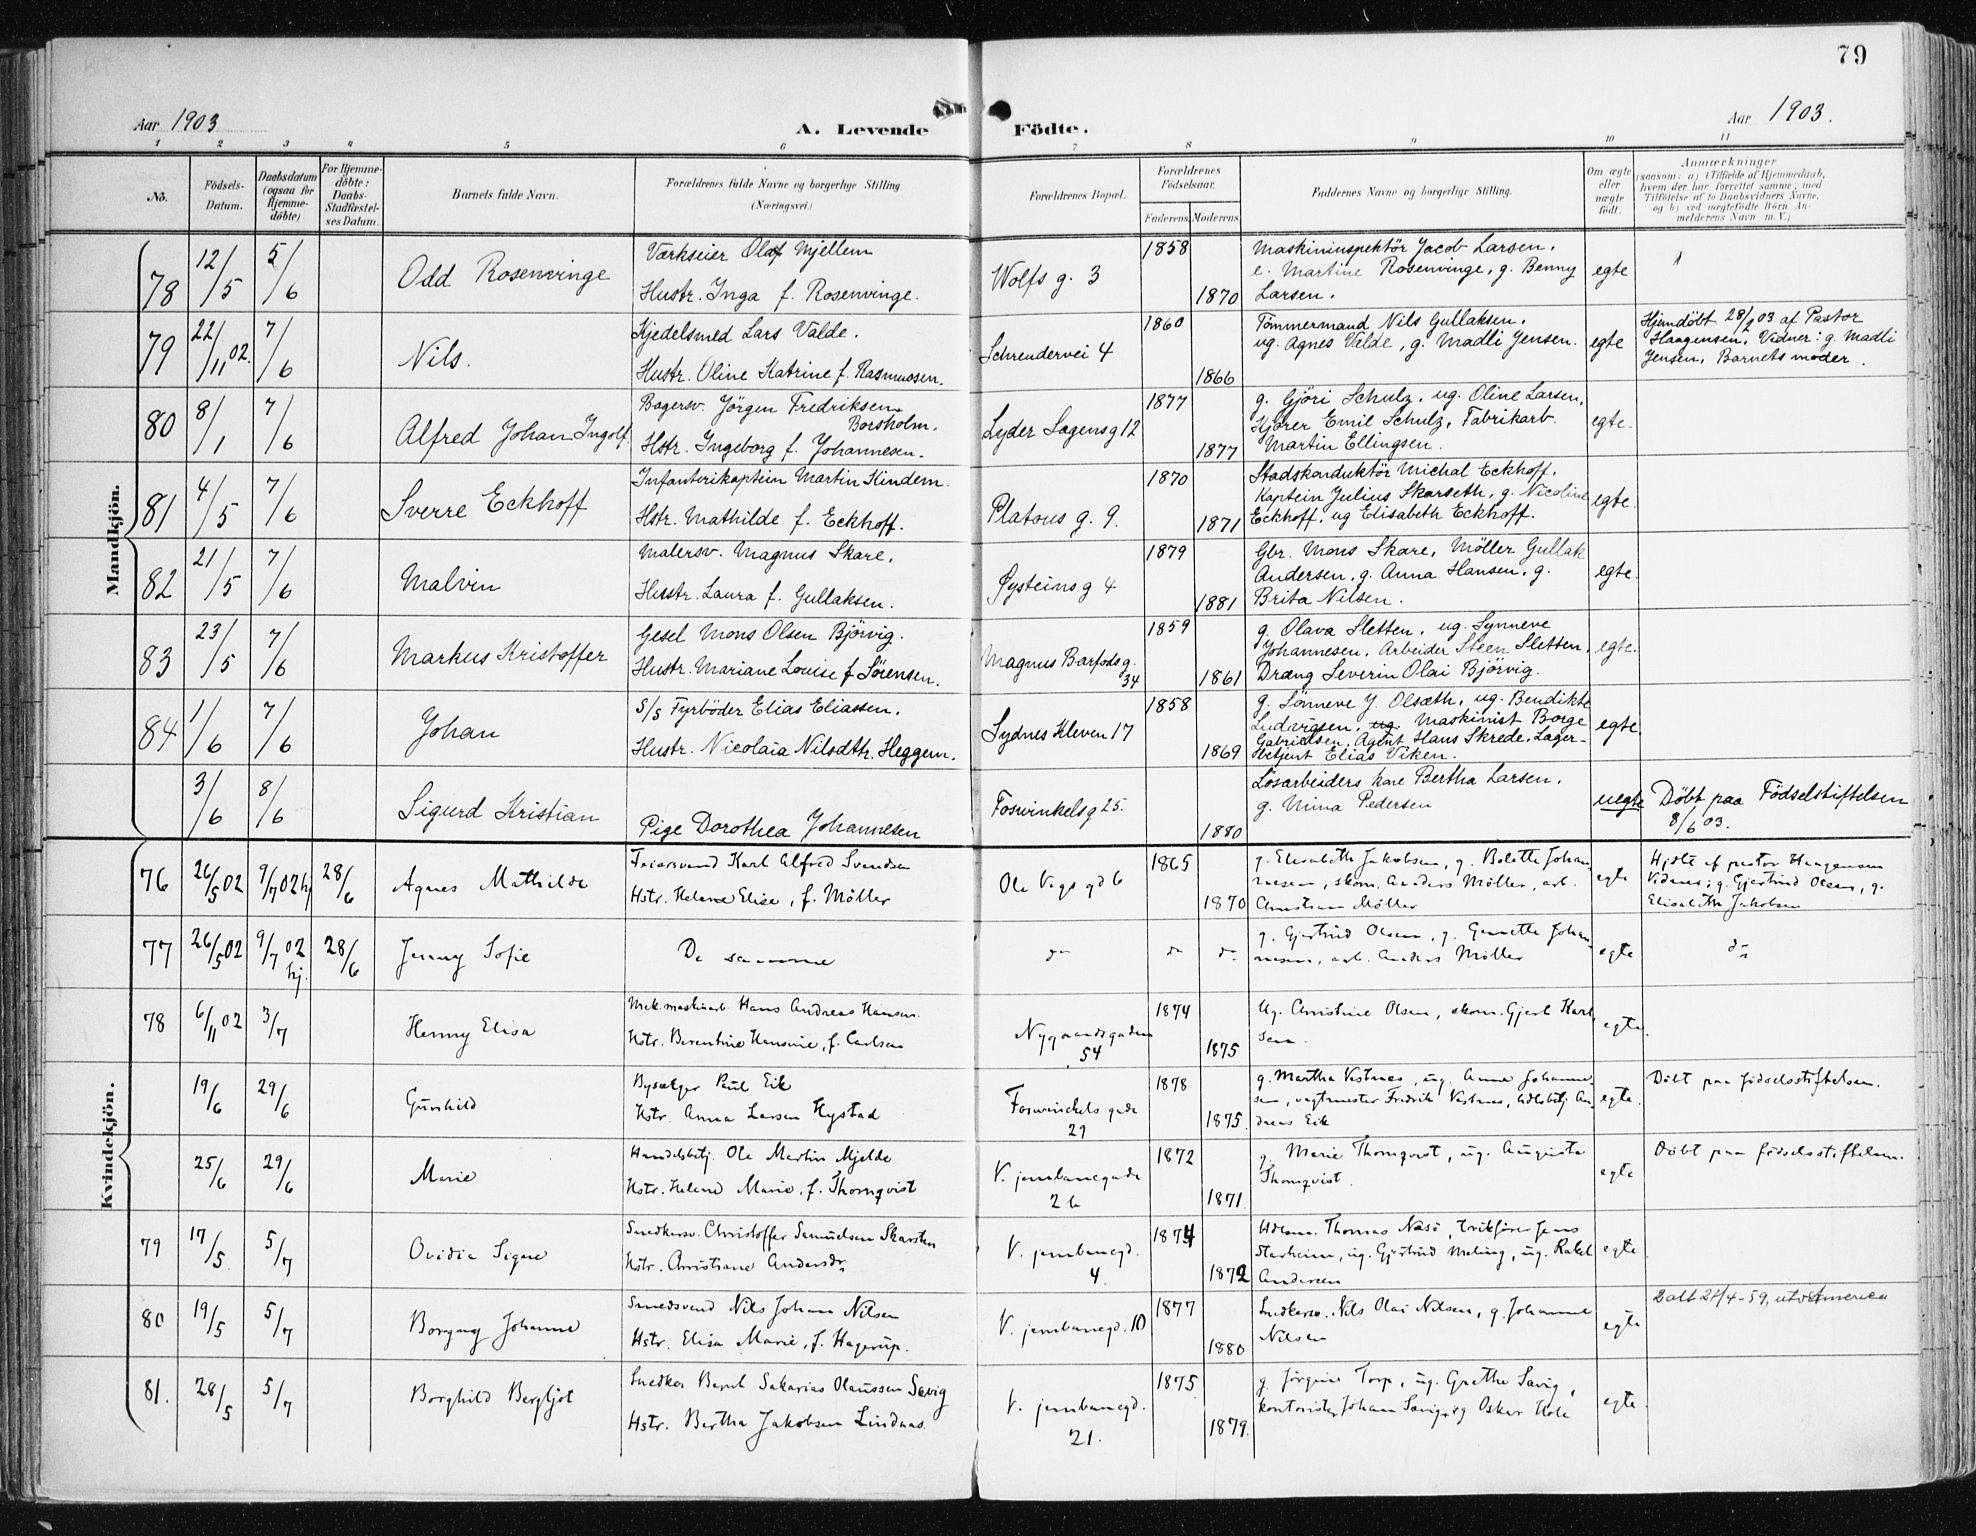 79
Aar 1903
A. Levende
Födte.
Aar 1903.
1 2 3 4 5 6 7 8 9 10 11
No.
Födsels-
Datum.
Daabsdatum
(ogsaa for
Hjemme-
döbte)
For Hjemme-
döbte:
Daabs-
Stadfæstel-
ses Datum.
Barnets fulde Navn.
Forældrenes fulde Navne og borgerlige Stilling
(Næringsvei.)
Forældrenes Bopæl.
Forældrenes
Födselsaar.
Faderens Moderens
Faddernes Navne og borgerlige Stilling.
Om ægte
eller
uægte
födt.
Anmærkninger
(saasom: a) i Tilfælde af Hjemmedaab,
hvem der har forrettet samme, med
Tilföielse af to Daabsvidners Navne,
og b) ved uægtefödte Börn An-
melderens Navn m.V.)
Mandkjön.
78 12/5 5/6 Odd Rosenvinge
Værkseier Olaf Mjellem
Hustr. Inga f. Rosenvinge.
Wolfs g. 3
1858
1870
Maskininspektör Jacob Larsen.
e. Martine Rosenvinge, g. Benny
Larsen.
egte
79 22/11 02. 7/6 Nils.
Kjedelsmed Lars Valde.
Hustr. Oline Katrine f. Rasmussen.
Schrendervei 4
1860
1866
Tömmermand Nils Gullaksen.
ug. Agnes Valde, g. Madli Jensen.
egte
Hjemdöbt 28/2 03 af Pastor
Haagensen. Vidner: g. Madli
Jensen, Barnets moder.
80 8/1 7/6 Alfred Johan Ingolf.
Bagersv. Jörgen Fredriksen
Borsholm.
Hstr. Ingeborg f. Johannesen.
Lyder Sagens g 12
1877
1877
g. Gjöri Schulz, ug. Oline Larsen,
Kjörer Emil Schulz, Fabrikarb.
Martin Ellingsen.
egte.
81 4/5 7/6 Sverre Eckhoff
Infanterikaptein Martin Kindem.
Hstr. Mathilde f. Eckhoff.
Platous g. 9.
1870
1871
Stadskonduktör Michal Eckhoff.
Kaptein Julius Skarseth, g. Nicoline
Eckhoff, ug Elisabeth Eckhoff.
egte.
82 21/5 7/6 Malvin
Malersv. Magnus Skare.
Hustr. Laura f. Gullaksen.
Øysteins g 4
1879
1881
Gbr. Mons Skare, Möller Gullak
Andersen, g. Anna Hansen, g.
Brita Nilsen.
egte.
83 23/5 7/6 Markus Kristoffer
Gesel Mons Olsen Björvig.
Hustr. Mariane Louise f Sörensen.
Magnus Barfods g.
34
1859
1861
g. Olava Sletten, ug. Synneve
Johannesen. Arbeider Steen Sletten.
Dræng Severin Olai Björvig.
egte.
84 1/6 7/6 Johan
S/S Fyrböder Elias Eliassen.
Hustr. Nicolaia Nilsdtr. Heggem.
Sydnes Kleven 17
1858
1869
g. Sönneve J. Olsæth, ug. Bendikte
Ludvigsen, ug. Maskinist Borge
Gabrielsen, Agent Hans Skrede, Lager-
betjent Elias Viken.
egte.
3/6 8/6 Sigurd Kristian
Pige Dorothea Johannesen
Foswinkels g 25.
1880
Lösarbeiders kone Bertha Larsen.
g. Mina Pedersen
uegte
Döbt paa Födselstiftelsen
8/6 03.
Kvindekjön.
76 26/5 02 9/7 02 hj 28/6 Agnes Mathilde
Feiersvend Karl Alfred Svendsen
Hstr. Helene Elise, f. Möller
Ole Vigs gd 6
1865
1870
g. Elisabeth Jakobsen, g. Bolette Johan-
nesen, skom. Anders Möller, arb.
Christian Möller
egte
Hjdbt af pastor Haagensen
Vidner: g. Gjertrud Olsen, g.
Elisabeth Jakobsen
77 26/5 02 9/7 02 hj. 28/6 Jenny Sofie
De samme
do do do
g. Gjertrud Olsen, g. Johan-
nesen, arb. Anders Möller
egte
do
78 6/11 02 3/7 Henny Elisa
Mek. maskinarb. Hans Andreas Hansen.
Hstr. Berentine Hansine, f. Carlsen
Nygaardsgaden
54
1874
1875
Ug. Christine Olsen, skom. Gjert Karl-
sen.
egte.
19/6 29/6 Gunhild
Bysælger Paul Eik
Hstr. Anna Larsen Hystad
Foswinckels gade
29
1878
1875.
g. Martha Vestnes, ug. Anna Johanne-
sen, vagtmester Fredrik Vestnes, An-
dreas Eik
egte.
Döbt paa födselsstiftelsen.
25/6 29/6 Marie
Handelsbetj. Ole Martin Mjelde
Hstr. Helene Marie, f. Thornqvist
V. jernbanegade
26
1872
1871
g. Marie Thornqvist, ug. Augusta
Thornqvist.
egte
Döbt paa födselsstiftelsen.
79 17/5 5/7 Ovidia Signe
Snedkersv. Christoffer Samuelsen Skarsten
Hstr. Christiane Andersdr.
V. jernbanegd.
4.
1874
1872
Thomas Næsö, Jens
Starheim, ug. Gjertrud Meling, ug. Rakel
Andersen
egte
80 19/5 5/7 Borgny Johanne
Smedsvend Nils Johan Nilsen
Hstr. Elisa Marie, f. Hagerup.
V. jernbanegd. 10
1877
1880
Snedkersv. Nils Olai Nilsen, g. Johanne
Nilsen
egte
2 att 21/4-59, utv. America
81. 28/5 5/7 Borghild Bergljot
Snedker Bernt Sakarias Olaussen Sævig
Hstr. Bertha Jakobsen Lindaas.
V. jernbanegd.
21.
1875
1879.
g. Jörgine Torp, ug. Grethe Sævig,
kontorister Johan Sævig og Oskar Hole
egte.